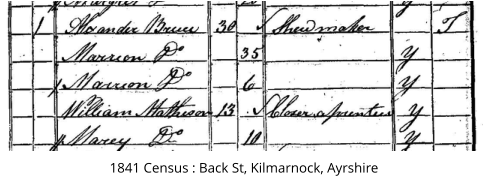 1 Alexander Bruce 30 Shewmaker I
Marrion Do 35 Y
Marrion Do 6 Y
William Mathieson 13 Closer aprentice Y
Marey Do 10 Y
1841 Census : Back St, Kilmarnock, Ayrshire